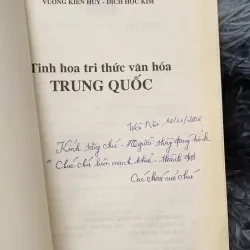 VƯƠNG KIẾN HUY - DỊCH HỌC KIM
Tinh hoa tri thức văn hóa
TRUNG QUỐC
Hà Nội, 20/11/2006
Kính tặng chú - Người thầy đáng kính
Chúc chú luôn mạnh khỏe - thành đạt
Các cháu của chú